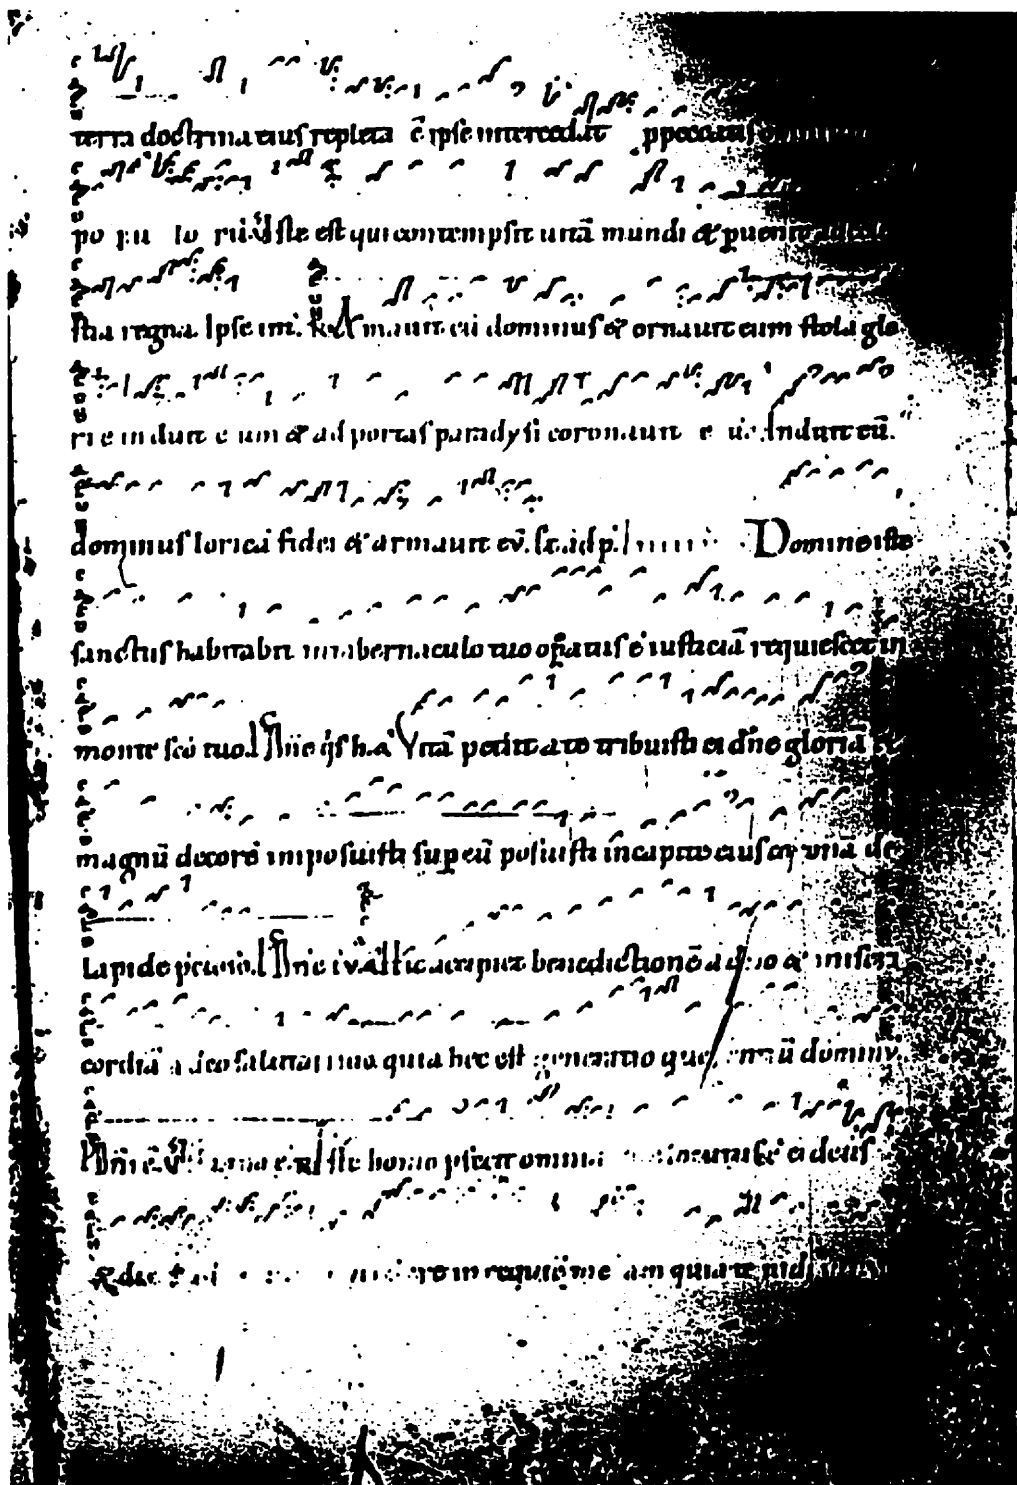 terra doctrina eius repleta ē ipse intercedat p peccatis
po pu lo rū. V Iste est qui contempsit uitā mundi & ꝑuenit ad cele
stia regna. Ipse int̄. R Amauit eū dominus & ornauit eum stola glo
rie induit e um & ad portas paradysi coronauit e ū. V Induit eū.
dominus loricā fidei & armauit eū. Et. ad p. Domine iste
sanctus habitabit in tabernaculo tuo oꝑatus ē iusticiā requiescet in
monte scō tuo. Dn̄e q̄s h. a Vitā petiit a te tribuisti ei dn̄e gloriā &
magnū decorē imposuisti suꝑ eū posuisti in capite eius coronā de
lapide p̄cioso. Dn̄e i v. a Hic accipiet benedictionē a dn̄o & miseri
cordiā a deo salutari suo quia hec est generatio querentiū dominū.
Dn̄i ē. V R Iste homo ꝑfecit omnia locutus ē ei deus
& dix in requiē me am quia te uidi